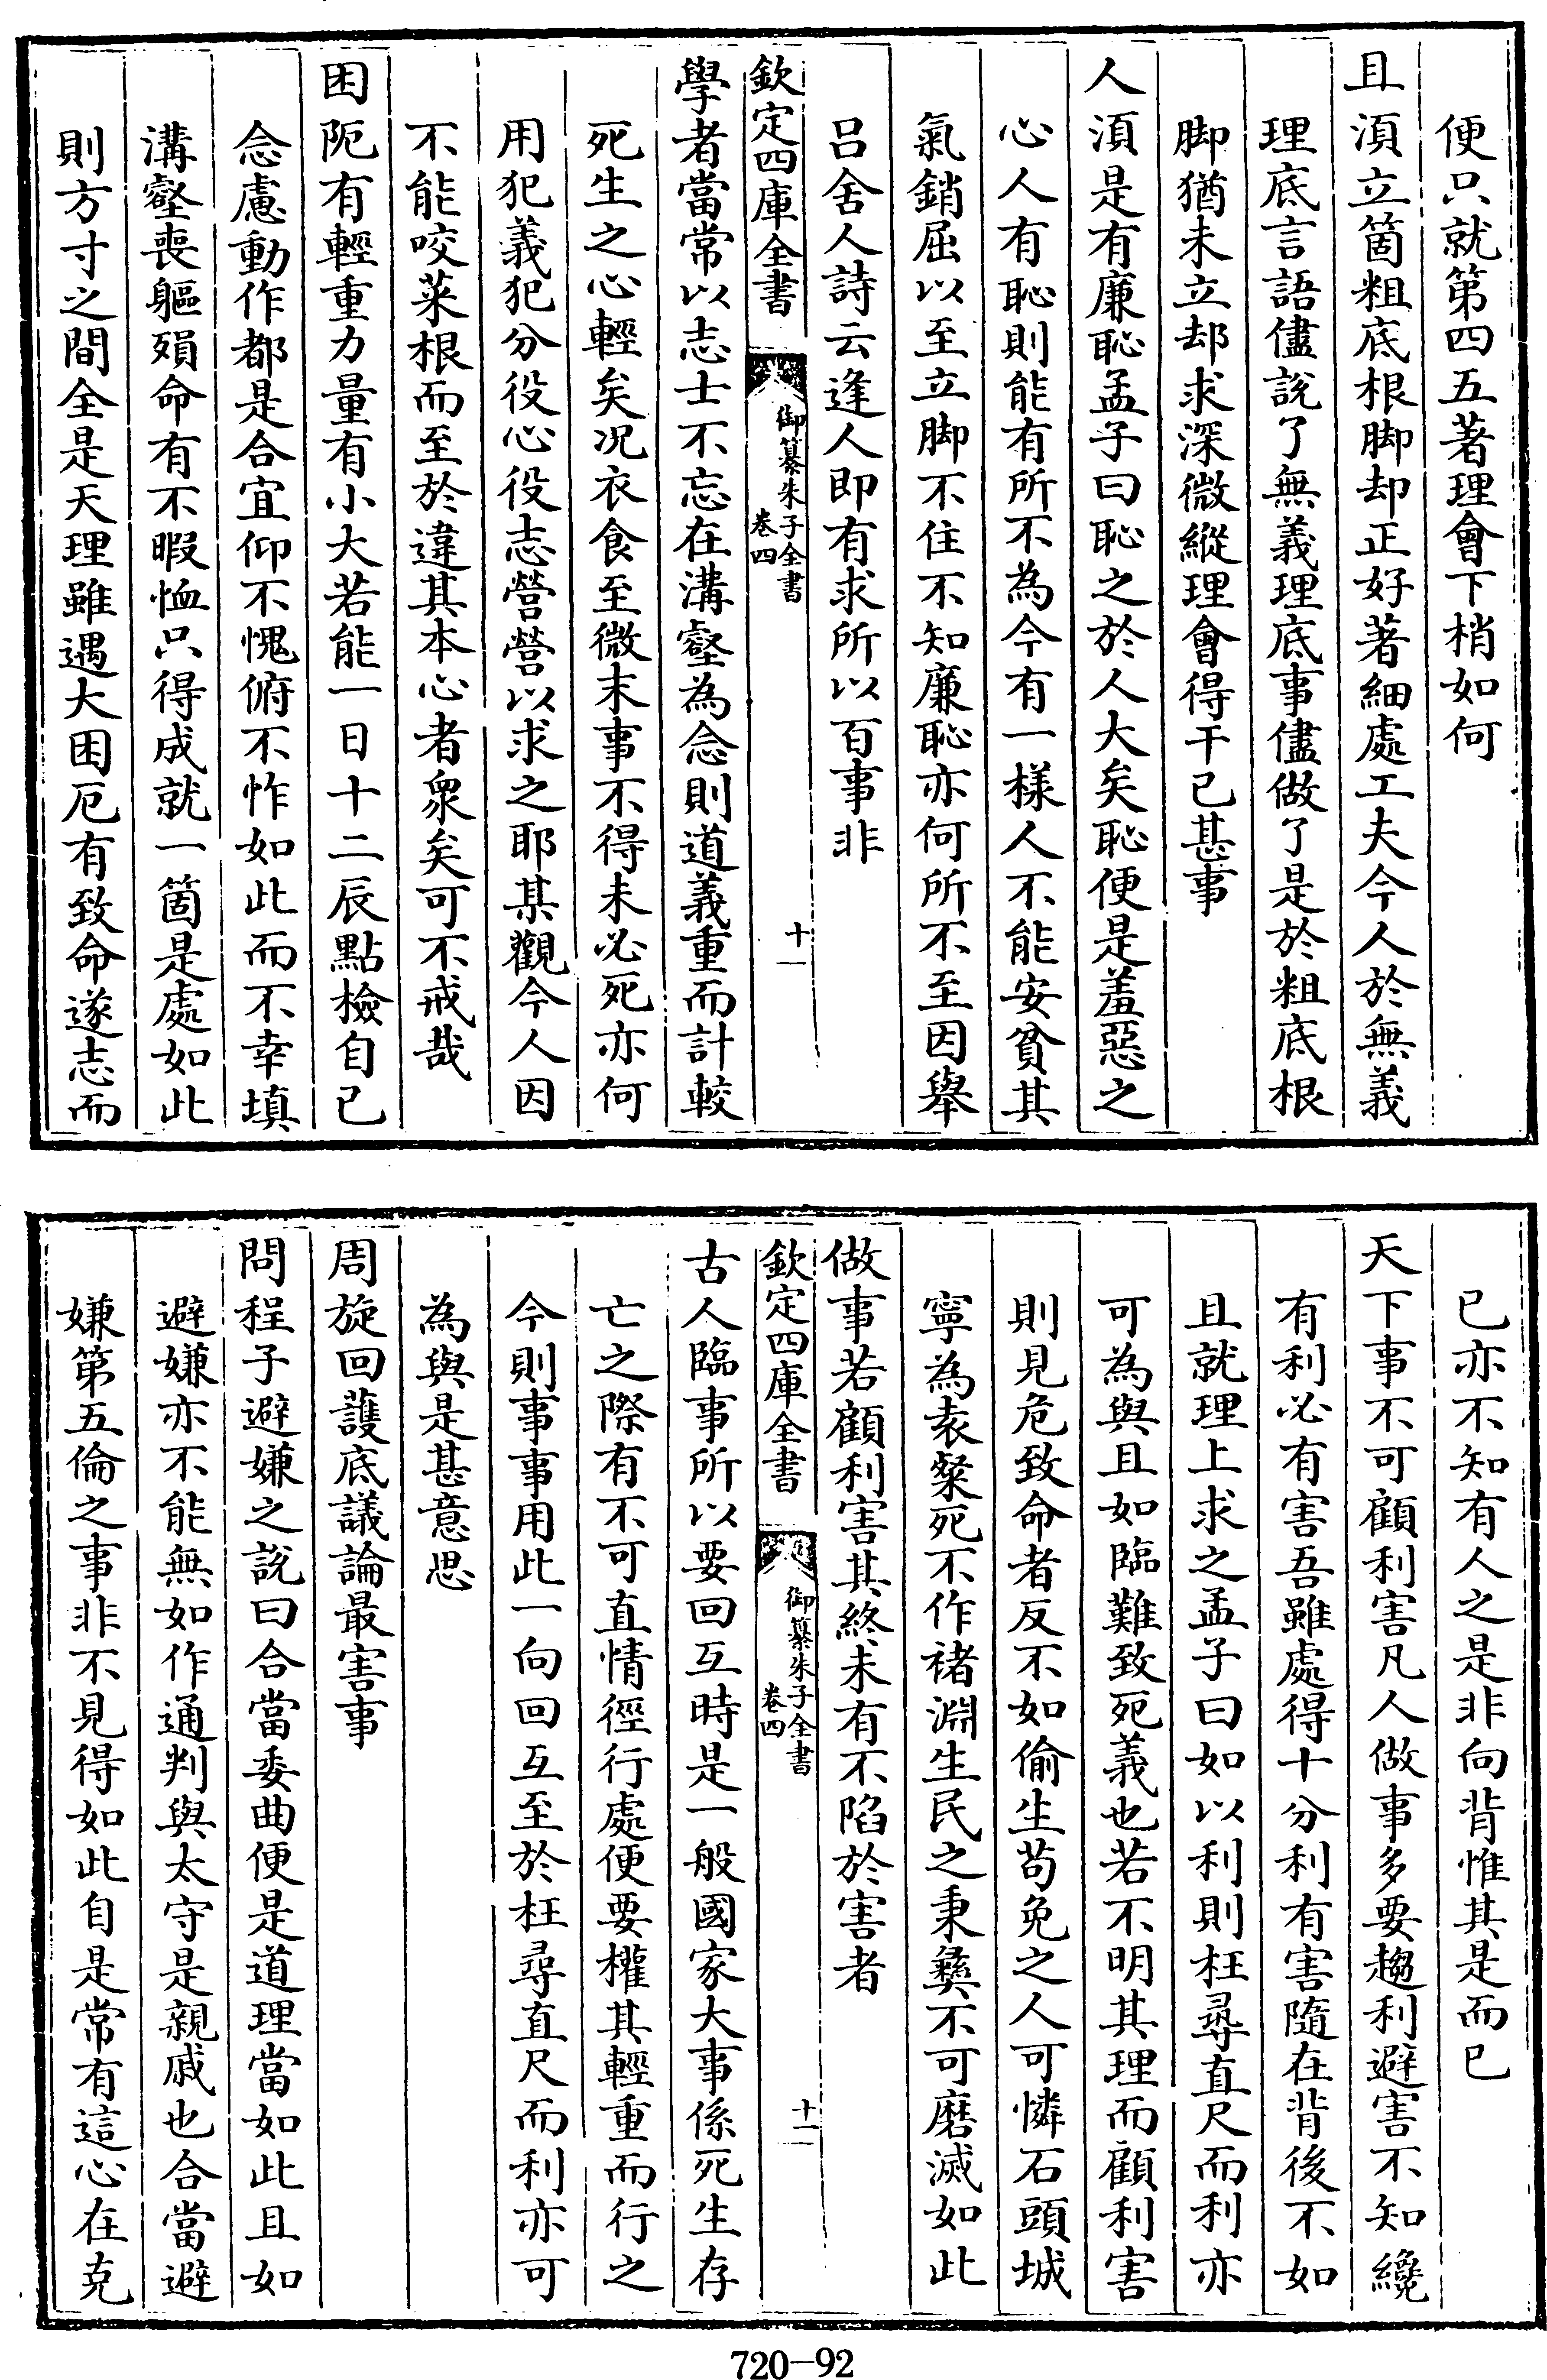 便只就第四五著理會下梢如何
且湏立箇粗底根脚却正好著細處工夫今人於無義
理底言語儘説了無義理底事儘做了是於粗底根
脚猶未立却求深微縱理會得干已甚事
人湏是有廉恥孟子曰恥之於人大矣恥便是羞惡之
心人有恥則能有所不為今有一様人不能安貧其
氣銷屈以至立脚不住不知廉恥亦何所不至因舉
吕舍人詩云逢人即有求所以百事非
欽定四庫全書
御纂朱子全書
卷四
十一
學者當常以志士不忘在溝壑為念則道義重而計較
死生之心輕矣况衣食至微末事不得未必死亦何
用犯義犯分役心役志營營以求之耶某觀今人因
不能咬菜根而至於違其本心者衆矣可不戒哉
困阨有輕重力量有小大若能一日十二辰點檢自已
念慮動作都是合宜仰不愧俯不怍如此而不幸填
溝壑喪軀殞命有不暇恤只得成就一箇是處如此
則方寸之間全是天理雖遇大困厄有致命遂志而
已亦不知有人之是非向背惟其是而已
天下事不可顧利害凡人做事多要趨利避害不知纔
有利必有害吾雖處得十分利有害隨在背後不如
且就理上求之孟子曰如以利則枉尋直尺而利亦
可為與且如臨難致死義也若不明其理而顧利害
則見危致命者反不如偷生苟免之人可憐石頭城
寧為袁粲死不作褚淵生民之秉彝不可磨滅如此
做事若顧利害其終未有不陷於害者
欽定四庫全書
御纂朱子全書
卷四
十一
古人臨事所以要回互時是一般國家大事係死生存
亡之際有不可直情徑行處便要權其輕重而行之
今則事事用此一向回互至於枉尋直尺而利亦可
為與是甚意思
周旋回䕶底議論最害事
問程子避嫌之説曰合當委曲便是道理當如此且如
避嫌亦不能無如作通判與太守是親戚也合當避
嫌第五倫之事非不見得如此自是常有這心在克
720-92